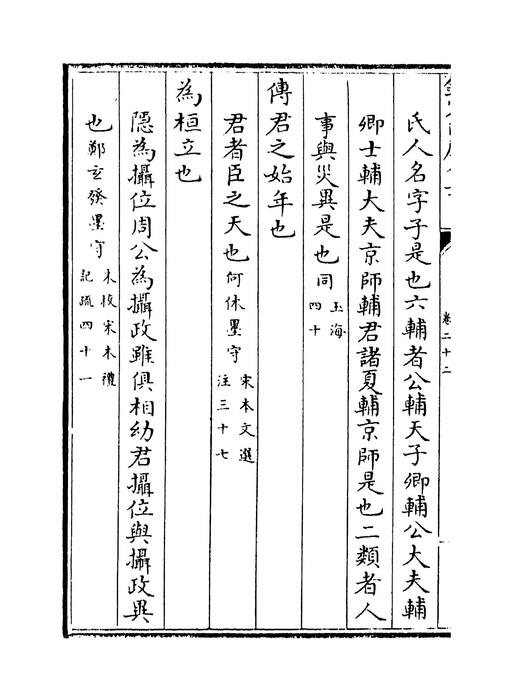 卷二十二
氏人名字子是也六輔者公輔天子卿輔公大夫輔
卿士輔大夫京師輔君諸夏輔京師是也二類者人
事與災異是也同玉海四十
傳君之始年也
君者臣之天也何休墨守宋本文選注三十七
為桓立也
隱為攝位周公為攝政雖俱相幼君攝位與攝政異
也鄭玄發墨守未收宋本禮記疏四十一